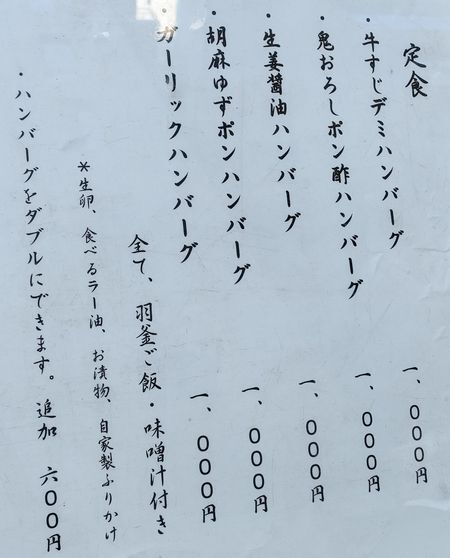 定食
・牛すじデミハンバーグ 一、000円
・鬼おろしポン酢ハンバーグ 一、000円
・生姜醤油ハンバーグ 一、000円
・胡麻ゆずポンハンバーグ 一、000円
・ガーリックハンバーグ 一、000円
全て、羽釜ご飯・味噌汁付き
*生卵、食べるラー油、お漬物、自家製ふりかけ
・ハンバーグをダブルにできます。 追加 六00円